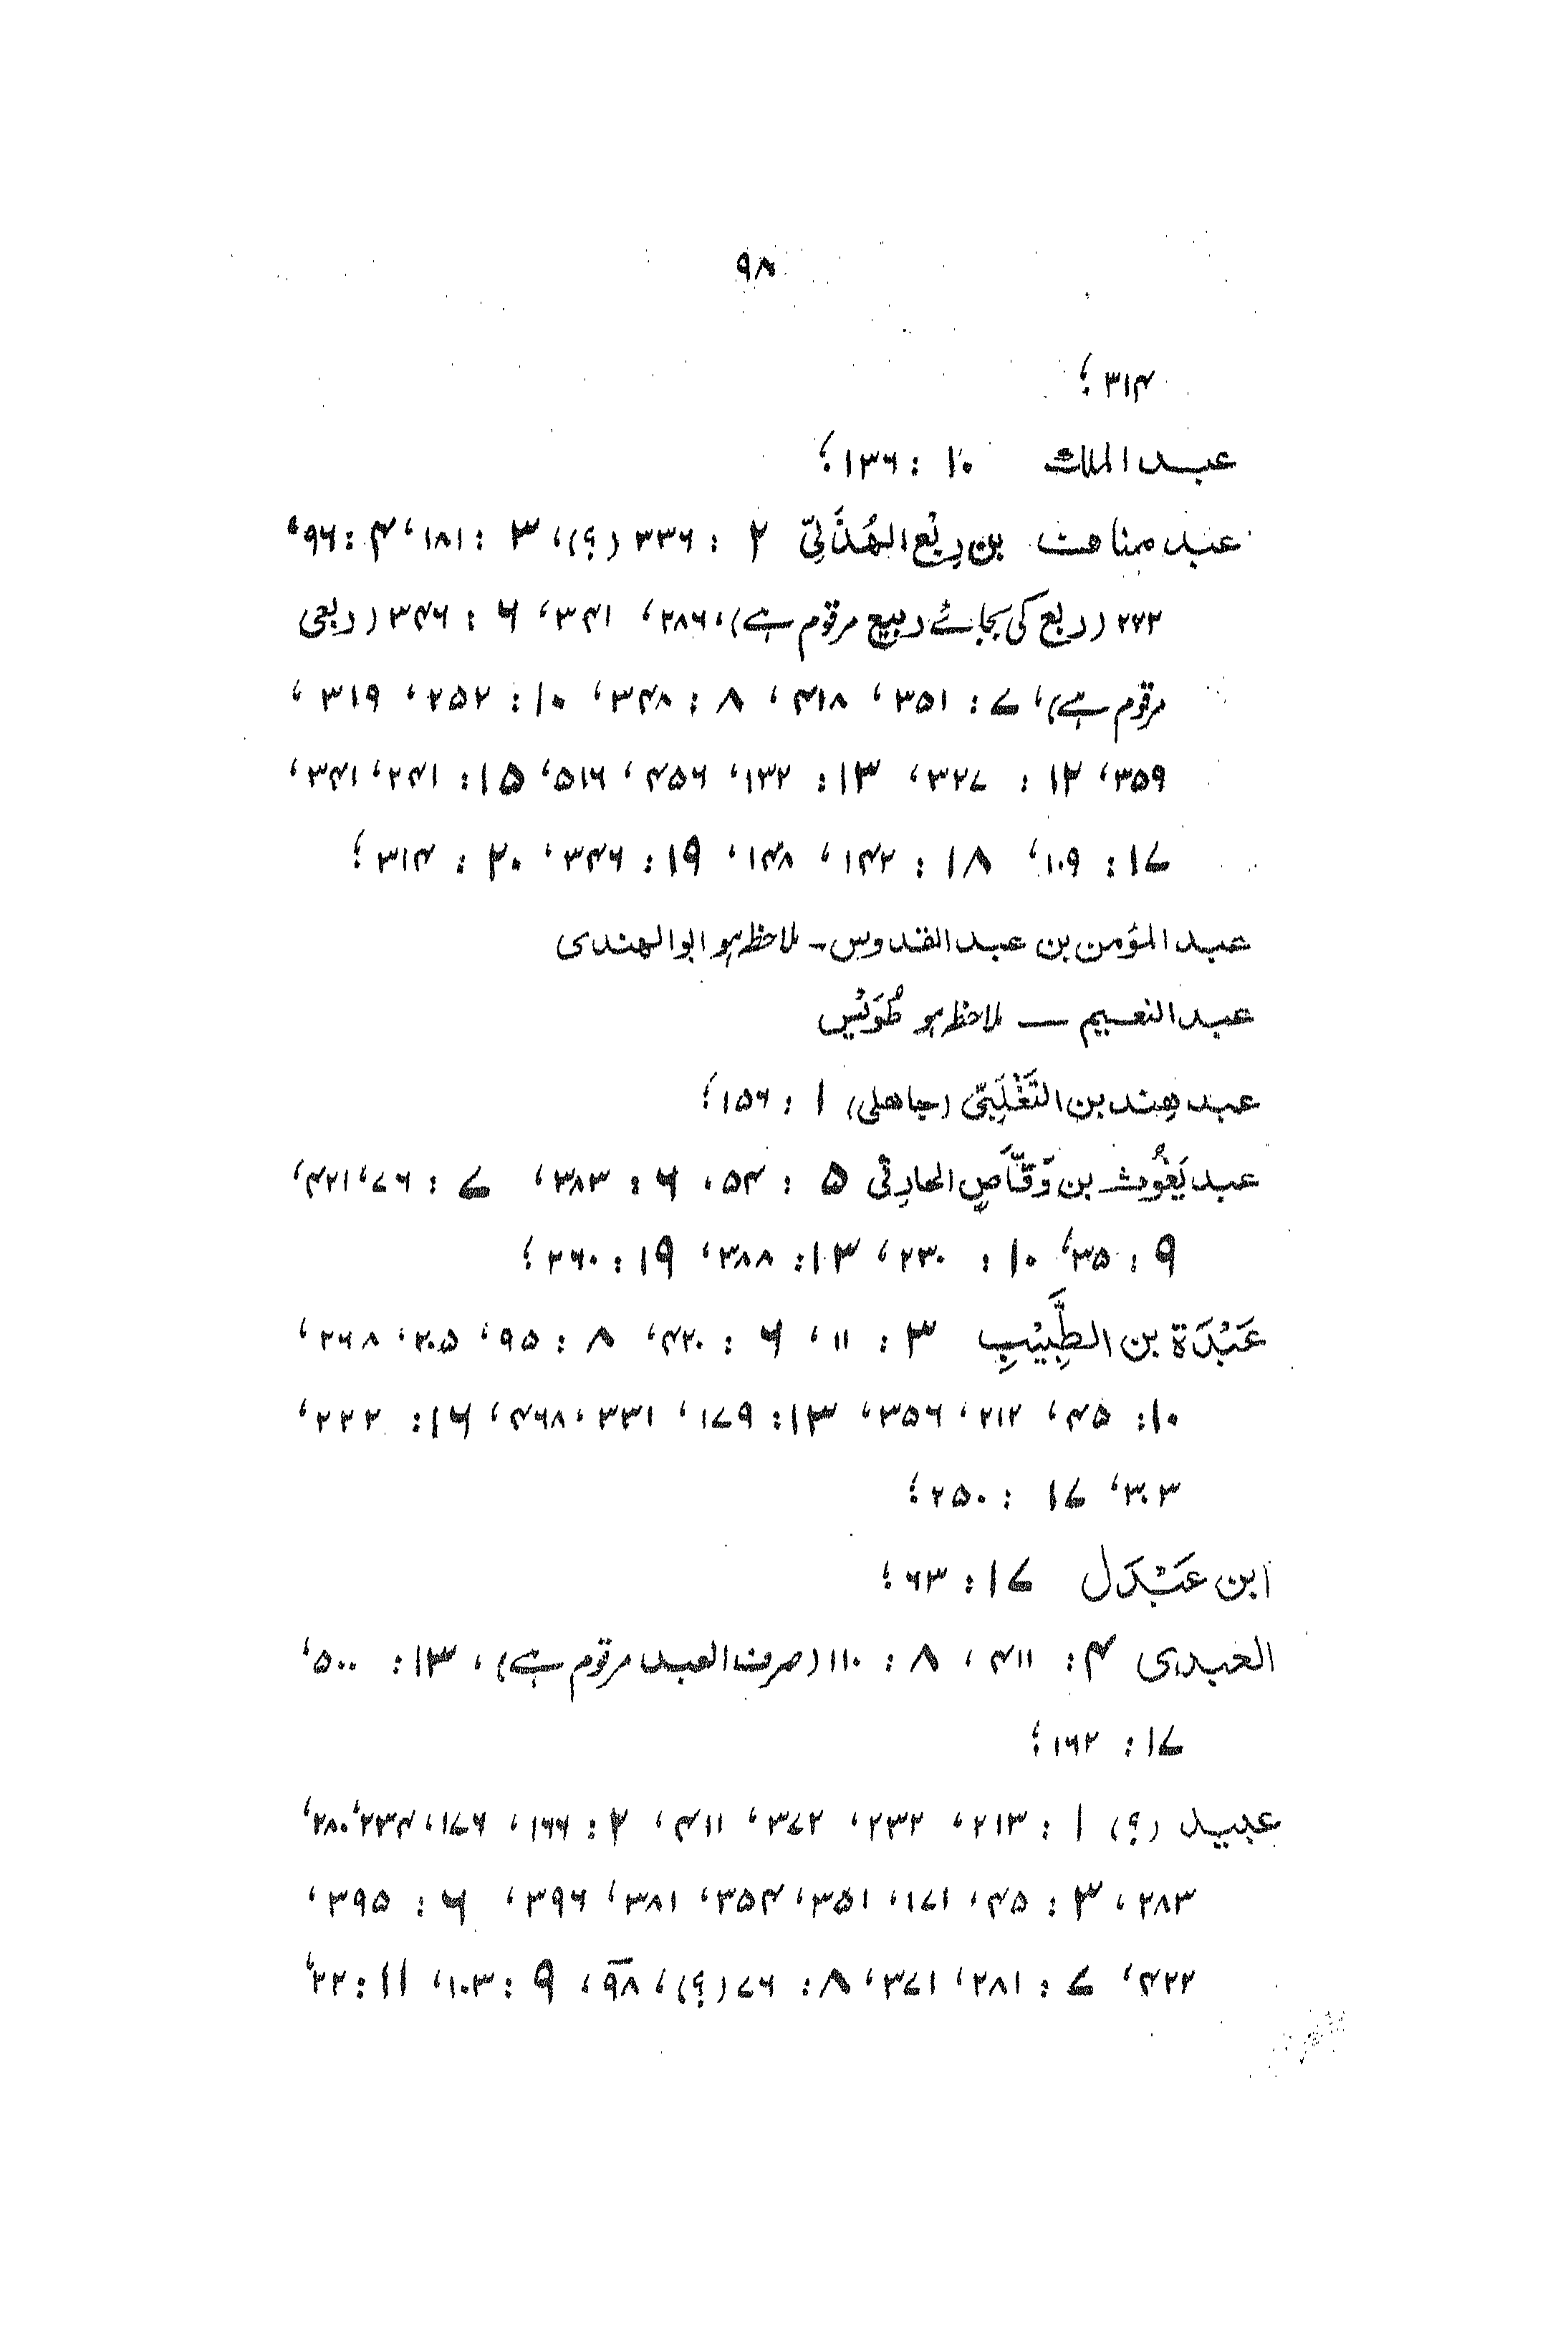 ۹۸
۳۱۴؛
عبدالملك ۱۰ : ۱۳۶؛
عبد مناف بن رِبْع الهُذَلِيّ ۲ : ۳۳۶ (؟)، ۳ : ۱۸۱، ۴ : ۹۶،
۲۷۲ (ربع کی بجائے ربیع مرقوم ہے)، ۲۸۶، ۳۴۱، ۶ : ۳۴۶ (ربعی
مرقوم ہے)، ۷ : ۳۵۱، ۴۱۸، ۸ : ۳۴۸، ۱۰ : ۲۵۲، ۳۱۹،
۳۵۹، ۱۲ : ۳۲۷، ۱۳ : ۱۳۲، ۴۵۶، ۵۱۶، ۱۵ : ۲۴۱، ۳۴۱،
۱۷ : ۱۰۹، ۱۸ : ۱۴۲، ۱۴۸، ۱۹ : ۳۴۶، ۲۰ : ۳۱۴؛
عبد المؤمن بن عبد القدوس ۔ ملاحظہ ہو ابوالهندی
عبد النعیم — ملاحظہ ہو طُوَيْس
عبد هِند بن التَغْلَبِيّ (جاهلی) ۱ : ۱۵۶؛
عبد يَغُوث بن وَقَّاصِ الحارِثي ۵ : ۵۴، ۶ : ۳۸۳، ۷ : ۷۶، ۴۲۱،
۹ : ۳۵، ۱۰ : ۲۳۰، ۱۳ : ۳۸۸، ۱۹ : ۲۶۰؛
عَبْدَة بن الطَّبِيْبِ ۳ : ۱۱، ۶ : ۴۲۰، ۸ : ۹۵، ۲۰۵، ۲۶۸،
۱۰ : ۴۵، ۲۱۲، ۳۵۶، ۱۳ : ۱۷۹، ۳۳۱، ۴۶۸، ۱۶ : ۲۲۲،
۳۰۳، ۱۷ : ۲۵۰؛
ابن عَبْدَل ۱۷ : ۶۳؛
العبدی ۴ : ۴۱۱، ۸ : ۱۱۰ (صرف العبد مرقوم ہے)، ۱۳ : ۵۰۰،
۱۷ : ۱۶۲؛
عبید (؟) ۱ : ۲۱۳، ۲۳۲، ۳۷۲، ۴۱۱، ۲ : ۱۶۶، ۱۷۶، ۲۳۴، ۲۸۰،
۲۸۳، ۳ : ۴۵، ۱۷۱، ۳۵۱، ۳۵۴، ۳۸۱، ۳۹۶، ۶ : ۳۹۵،
۴۲۲، ۷ : ۲۸۱، ۳۷۱، ۸ : ۷۶ (؟)، ۹۸، ۹ : ۱۰۳، ۱۱ : ۲۲،